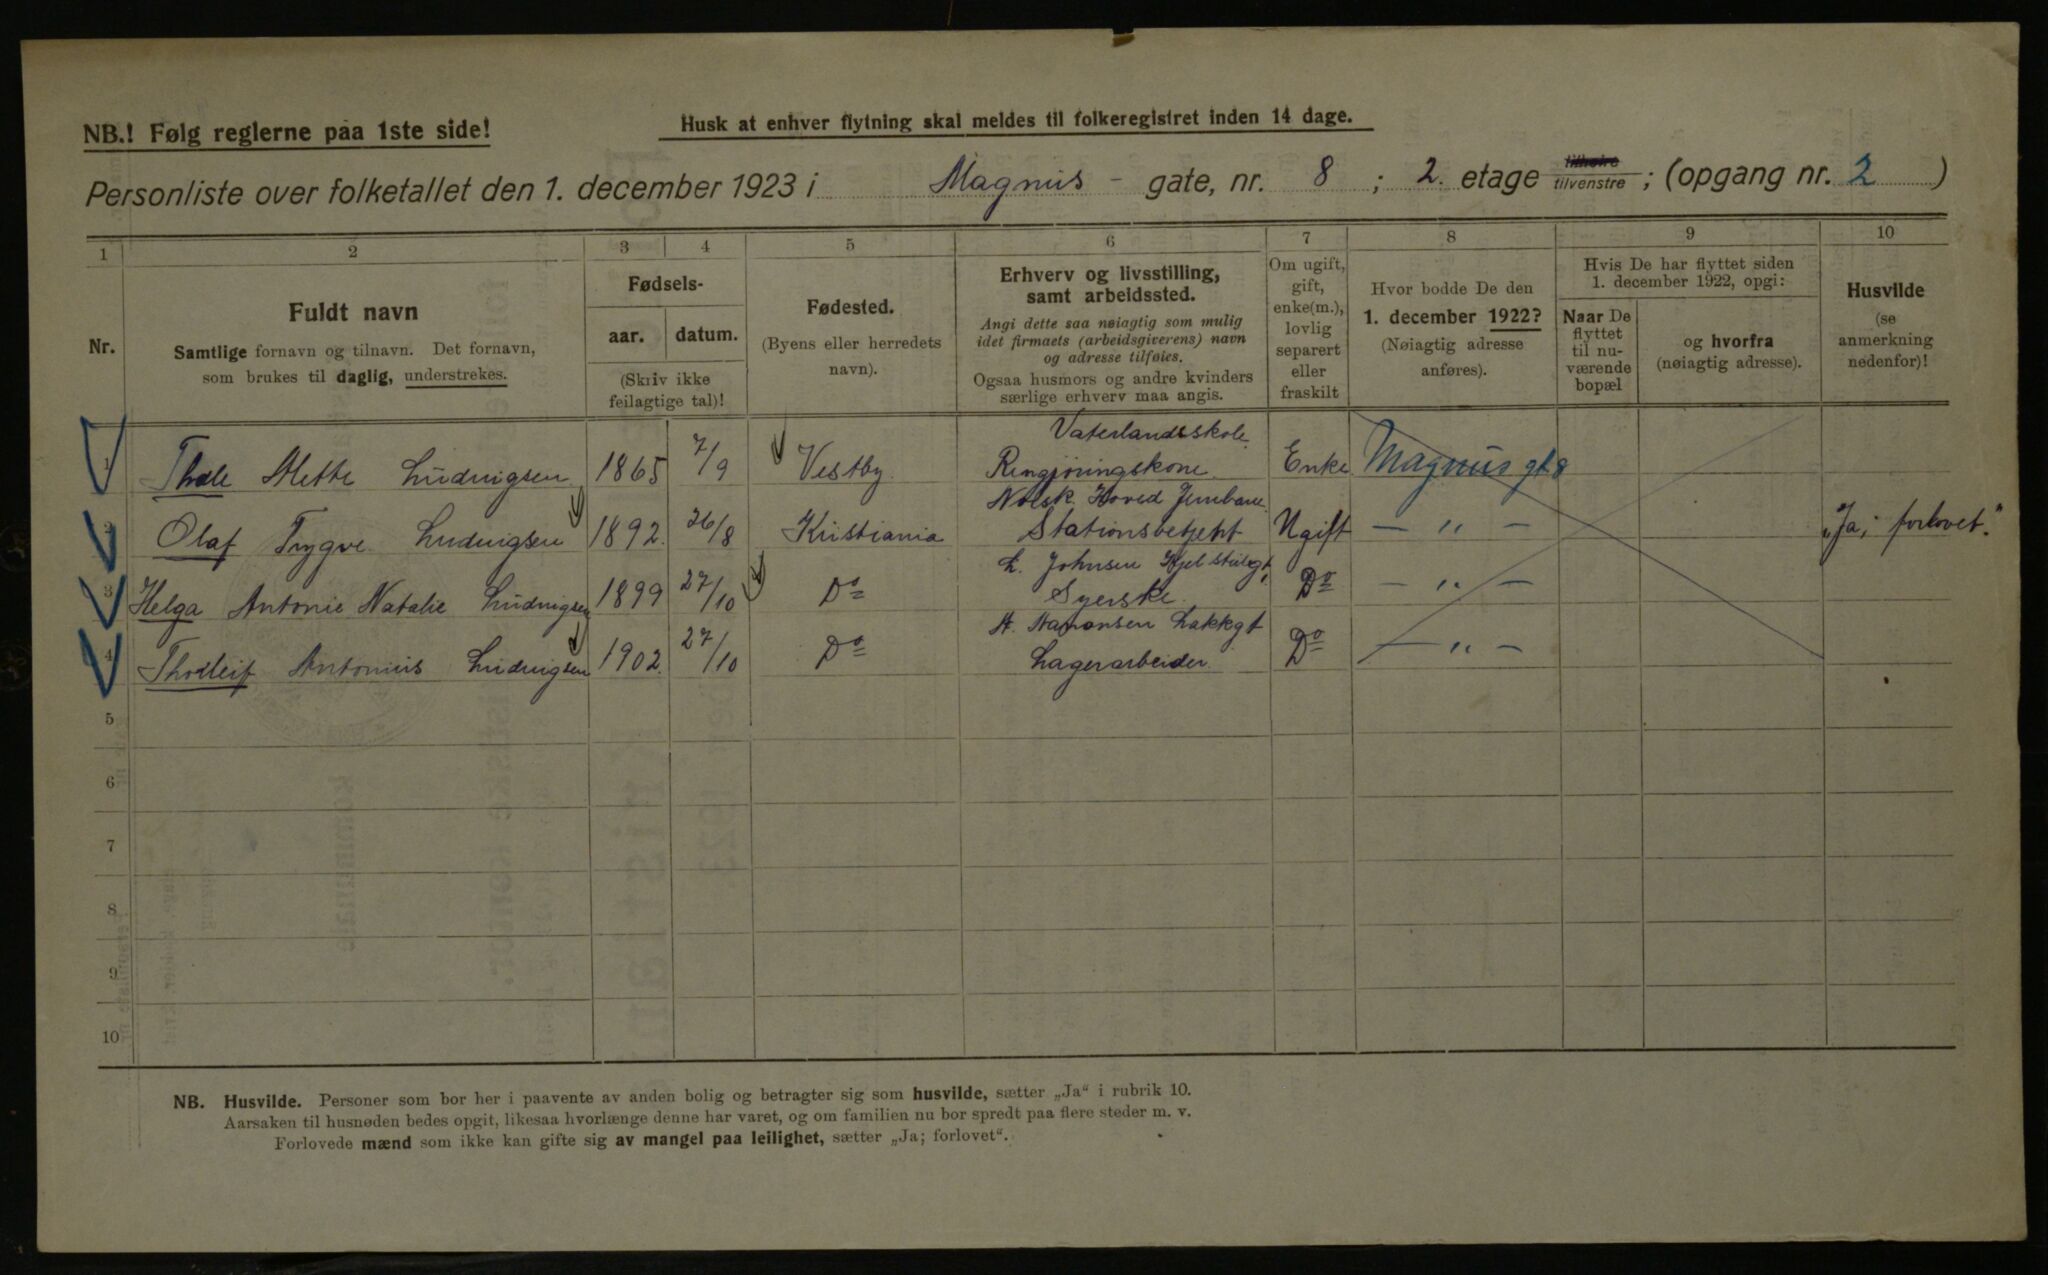 NB.! Følg reglerne paa 1ste side!
Husk at enhver flytning skal meldes til folkeregistret inden 14 dage.
Personliste over folketallet den 1. december 1923 i Magnus - gate, nr. 8 ; 2. etage tilhøire tilvenstre ; (opgang nr. 2 )
1 2 3 4 5 6 7 8 9 10
Nr.
Fuldt navn
Samtlige fornavn og tilnavn. Det fornavn,
som brukes til daglig, understrekes.
Fødsels-
aar. datum.
(Skriv ikke
feilagtige tal)!
Fødested.
(Byens eller herredets
navn).
Erhverv og livsstilling,
samt arbeidssted.
Angi dette saa nøiagtig som mulig
idet firmaets (arbeidsgiverens) navn
og adresse tilføies.
Ogsaa husmors og andre kvinders
særlige erhverv maa angis.
Om ugift,
gift,
enke(m.),
lovlig
separert
eller
fraskilt
Hvor bodde De den
1. december 1922?
(Nøiagtig adresse
anføres).
Hvis De har flyttet siden
1. december 1922, opgi:
Naar De
flyttet
til nu-
værende
bopæl
og hvorfra
(nøiagtig adresse).
Husvilde
(se
anmerkning
nedenfor)!
Vaterlandsskole.
1 Mette Ludvigsen 1865 7/9 Vestby. Rengjøringskone Enke Magnus gt 8
Norsk Hoved Jernbane
2 Olaf Trygve Ludvigsen 1892. 26/8 Kristiania Stationsbetjent Ugift — „ — „Ja; forlovet."
L. Johnsen
3 Helga Antonie Natalie Ludvigsen 1899 27/10 Do Syerske Do — „ —
Lakkgt
4 Thorleif Antonius Ludvigsen 1902. 27/10 Do Lagerarbeider. Do — „ —
5
6
7
8
9
10
NB. Husvilde. Personer som bor her i paavente av anden bolig og betragter sig som husvilde, sætter „Ja“ i rubrik 10.
Aarsaken til husnøden bedes opgit, likesaa hvorlænge denne har varet, og om familien nu bor spredt paa flere steder m. v.
Forlovede mænd som ikke kan gifte sig av mangel paa leilighet, sætter „Ja; forlovet“.